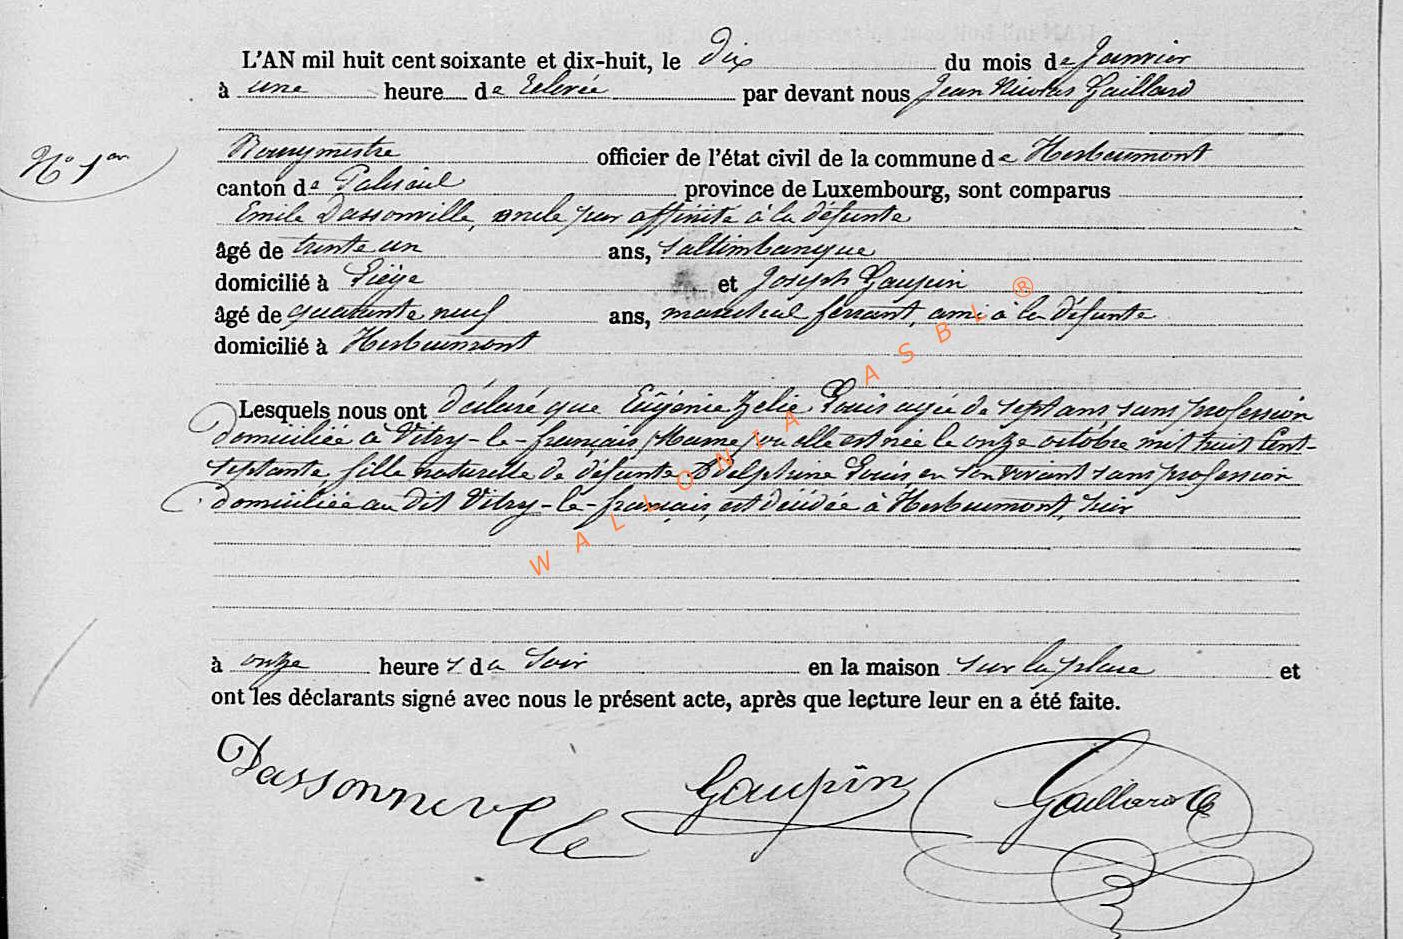 L'AN mil huit cent soixante et dix-huit, le Dix du mois de Janvier
à une heure de relevée par devant nous Jean Nicolas Gaillard
N° 1er
Bourgmestre officier de l'état civil de la commune de Herbeumont
canton de Paliseul province de Luxembourg, sont comparus
Emile Dassonville, oncle par affinité à la défunte
âgé de trente un ans, saltimbanque
domicilié à Liège et Joseph Gaupin
âgé de quarante neuf ans, maréchal ferrant, ami à la défunte
domicilié à Herbeumont
Lesquels nous ont déclaré que Eugénie Zelie Louis agée de sept ans sans profession
domiciliée à Vitry-le-français (Marne) ou elle est née le onze octobre mil huit Cent-
septante, fille naturelle de défunte Adelphine Louis, en son vivant sans profession
domiciliée au dit Vitry-le-français, est décédée à Herbeumont, hier
à onze heures du Soir en la maison sur la place et
ont les déclarants signé avec nous le présent acte, après que lecture leur en a été faite.
Dassonneville Gaupin Gaillard
WALLONIA ASBL ®